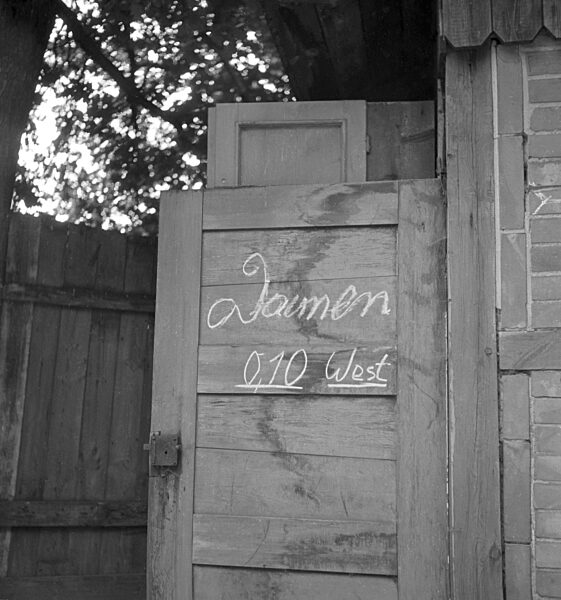 Damen
0,10 West